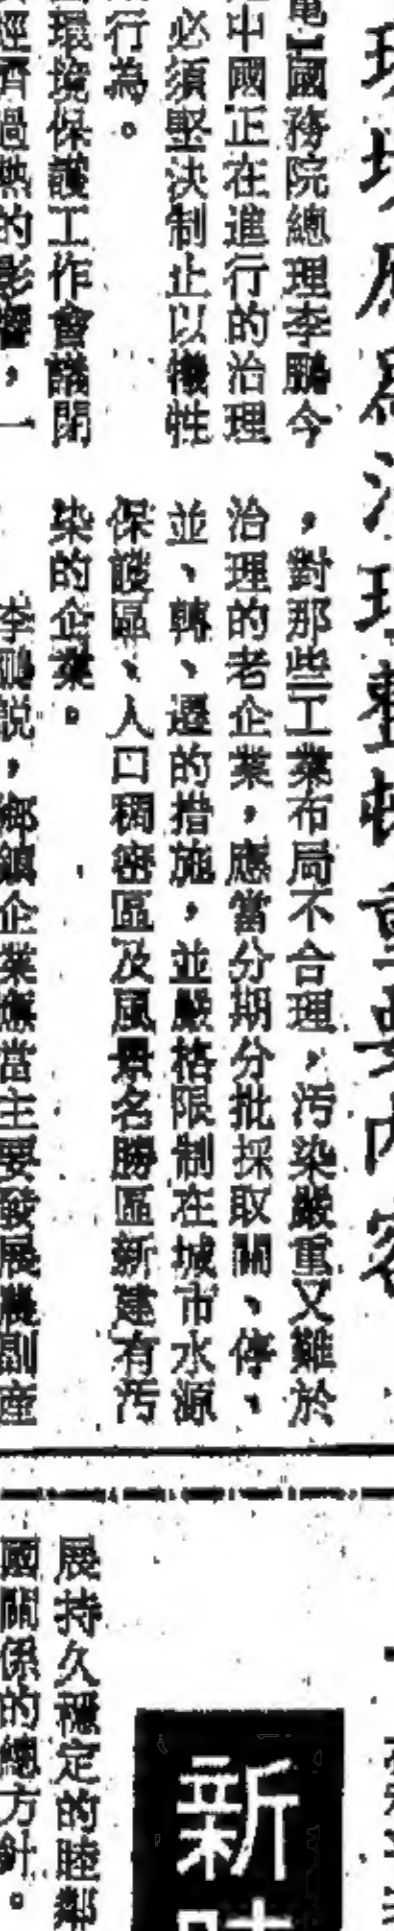 電】國務院總理李鵬今
中國正在進行的治理
必須堅決制止以犧牲
行為。
環境保護工作會議閉
經濟過熱的影響，一
，對那些工業布局不合理，污染嚴重又難於
治理的老企業，應當分期分批採取關、停、
並、轉、遷的措施，並嚴格限制在城市水源
保護區、人口稠密區及風景名勝區新建有污
染的企業。
李鵬說，鄉鎮企業應當主要發展農副產
治理整頓重要內容
新
展持久穩定的睦鄰
國關係的總方針。